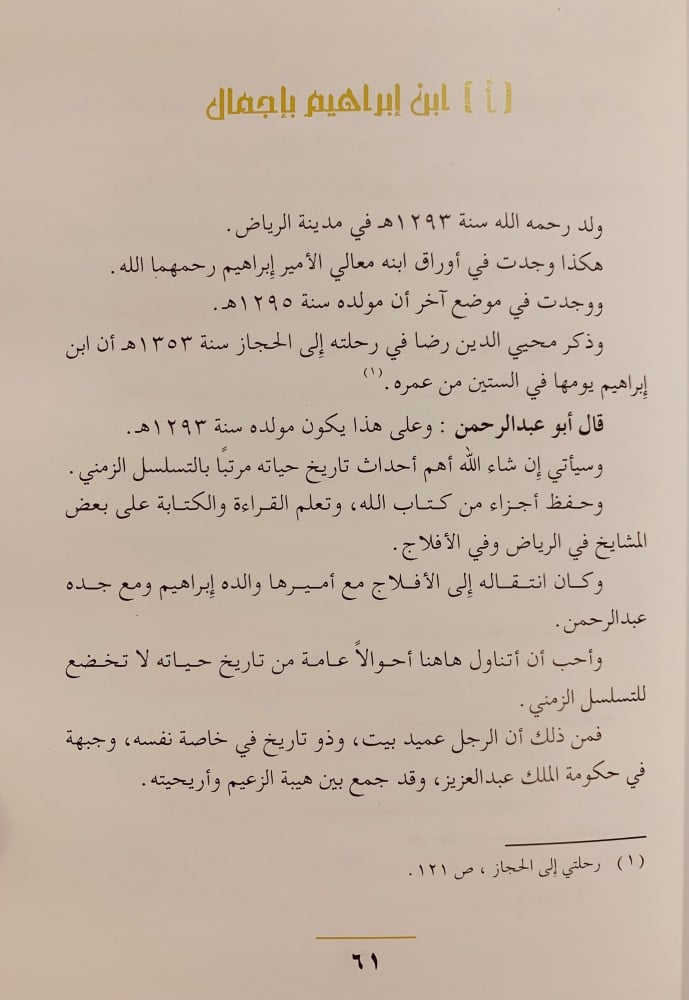 (أ) ابن إبراهيم بإجمال
ولد رحمه الله سنة ١٢٩٣هـ في مدينة الرياض.
هكذا وجدت في أوراق ابنه معالي الأمير إبراهيم رحمهما الله.
ووجدت في موضع آخر أن مولده سنة ١٢٩٥هـ.
وذكر محيي الدين رضا في رحلته إلى الحجاز سنة ١٣٥٣هـ أن ابن
إبراهيم يومها في الستين من عمره.(١)
قال أبو عبدالرحمن : وعلى هذا يكون مولده سنة ١٢٩٣هـ.
وسيأتي إن شاء الله أهم أحداث تاريخ حياته مرتبًا بالتسلسل الزمني.
وحفظ أجزاء من كتاب الله، وتعلم القراءة والكتابة على بعض
المشايخ في الرياض وفي الأفلاج.
وكان انتقاله إلى الأفلاج مع أميرها والده إبراهيم ومع جده
عبدالرحمن.
وأحب أن أتناول هاهنا أحوالاً عامة من تاريخ حياته لا تخضع
للتسلسل الزمني.
فمن ذلك أن الرجل عميد بيت، وذو تاريخ في خاصة نفسه، وجبهة
في حكومة الملك عبدالعزيز، وقد جمع بين هيبة الزعيم وأريحيته.
(١) رحلتي إلى الحجاز ، ص ١٢١.
٦١